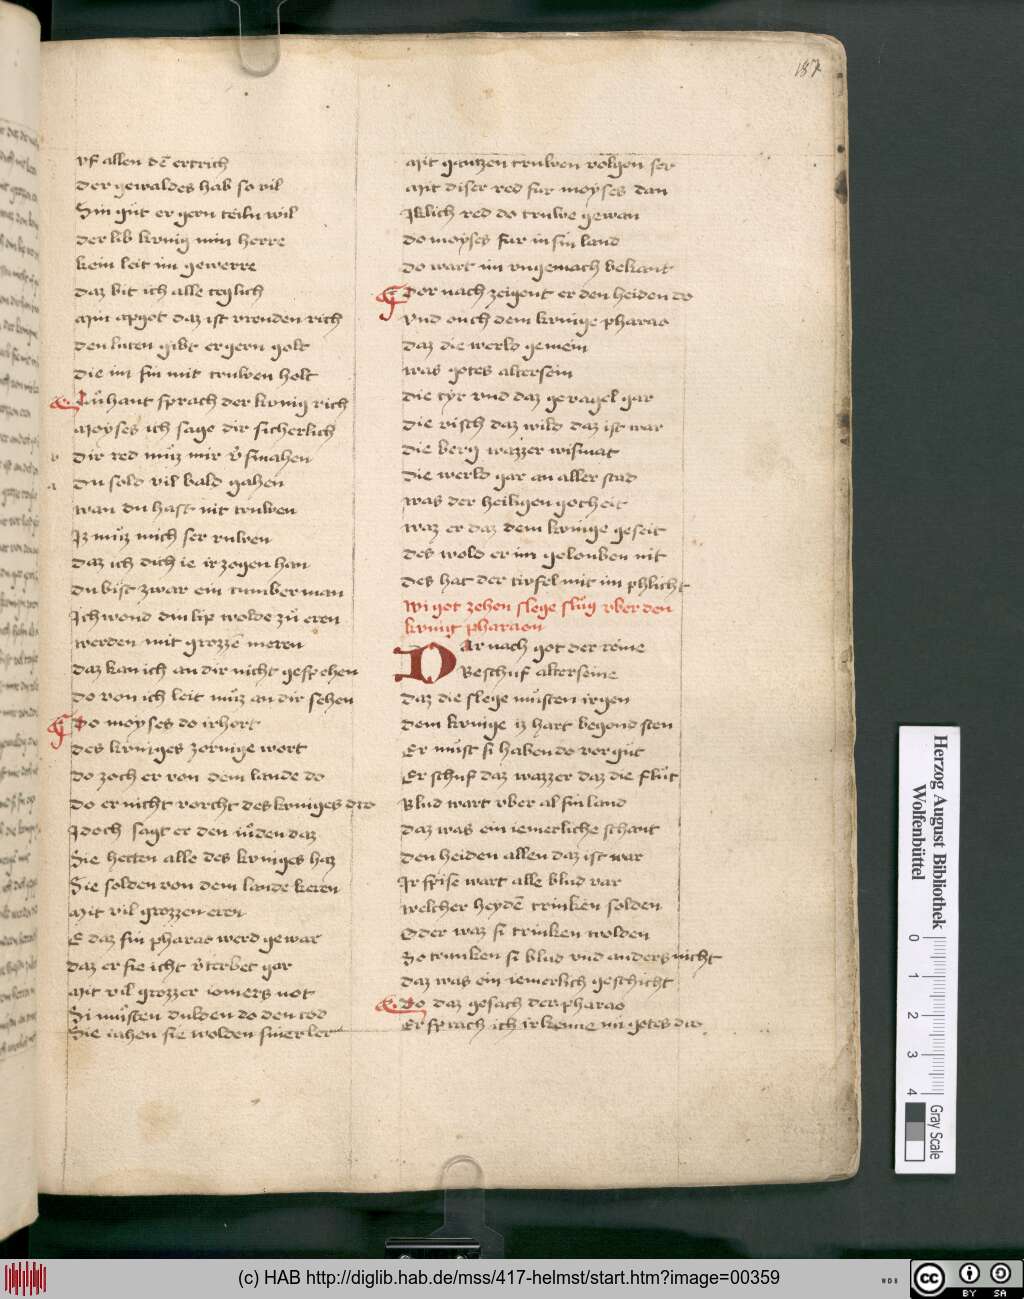 187
vf allen dē ertrich
Der gewaldes hab so vil
Sin gut er gern teiln wil
Der lib kvnig min herre
kein leit im gewerre
Daz bit ich alle teglich
Min apgot daz ist vrouden rich
Den luten gibt er gern golt
Die im sin mit truwen holt
hant sprach der kvnig rich
Moyses ich sage dir sicherlich
Dir red muz mir smahen
Du solt vil bald gahen
wan du hast nit truwen
Iz muz mich ser ruwen
Daz ich dich ie irzogen han
Du bist zwar ein tumber man
Ich wond din lip wolde zu eren
werden mit grozzē meren
Daz kan ich an dir nicht gespehen
Do von ich leit muz an dir sehen
Do moyses do irhort
Des kvniges zornige wort
Do zoch er von dem lande do
Do er nicht vorcht des kvniges dro
Idoch sagt er den iuden daz
Sie hetten alle des kvniges haz
Sie solden von dem lande keren
Mit vil grozzen eren
E daz sin pharao werd gewar
Daz er sie icht v̄terbet gar
Mit vil grozzer iomers not
Si musten dulden do den tod
Sie iahen sie wolden siner ler
Mit gantzen truwen volgen ser
Mit diser red fur moyses dan
Iklich red do truwe gewan
Do moyses fur in sin land
Do wart im vngemach bekant
Dor nach zeigent er den heiden do
Vnd ouch dem kvnige pharao
Daz die werld gemein
was gotes altersein
Die tyr vnd daz gevogel gar
Die visch daz wild daz ist war
Die berg wazzer wismat
Die werld gar an aller stad
was der heiligen gotheit
waz er daz dem kvnige geseit
Des wold er im gelouben nit
Des hat der tivfel mit im phlicht
wi got zehen slege slug vber den
kvnig pharaon
Dar nach got der reine
Beschuf alterseine
Daz die slege musten irgen
Dem kvnige iz hart begond sten
Er must si haben do vor gut
Er schuf daz wazzer daz die flut
Blud wart vber al sin land
Daz was ein iemerliche schant
Den heiden allen daz ist war
Ir spise wart alle blud var
welcher heydē trinken solden
Oder waz si trinken wolden
So trunken si blud vnd anders nicht
Daz was ein iemerlich geschicht
Do daz gesach der pharao
Er sprach ich irkenne nu gotes dro
Herzog August Bibliothek
Wolfenbüttel
0 1 2 3 4
Gray Scale
(c) HAB http://diglib.hab.de/mss/417-helmst/start.htm?image=00359
WDB
cc BY SA